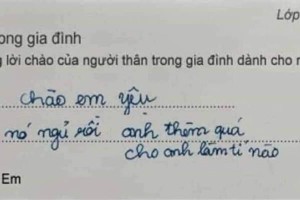 Lớp
ong gia đình
g lời chào của người thân trong gia đình dành cho
chào em yêu
nó ngủ rồi anh thèm quá
cho anh làm tí nào
Em